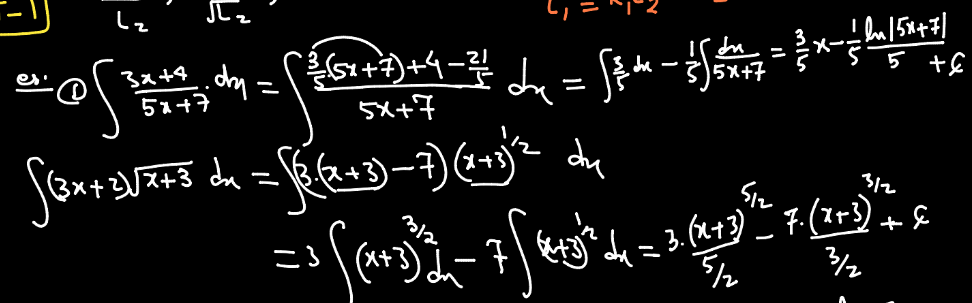 -1)
L₂ √L₂
L₁ = K₁L₂
es. ① ∫ (3x+4)/(5x+7) . dx = ∫ (3/5(5x+7)+4-21/5)/(5x+7) dx = ∫ 3/5 dx - 1/5 ∫ dx/(5x+7) = 3/5 x - 1/5 ln|5x+7|/5 + c
∫(3x+2)√(x+3) dx = ∫(3.(x+3)-7)(x+3)^(1/2) dx
= 3 ∫ (x+3)^(3/2) dx - 7 ∫ (x+3)^(1/2) dx = 3.(x+3)^(5/2)/(5/2) - 7.(x+3)^(3/2)/(3/2) + c